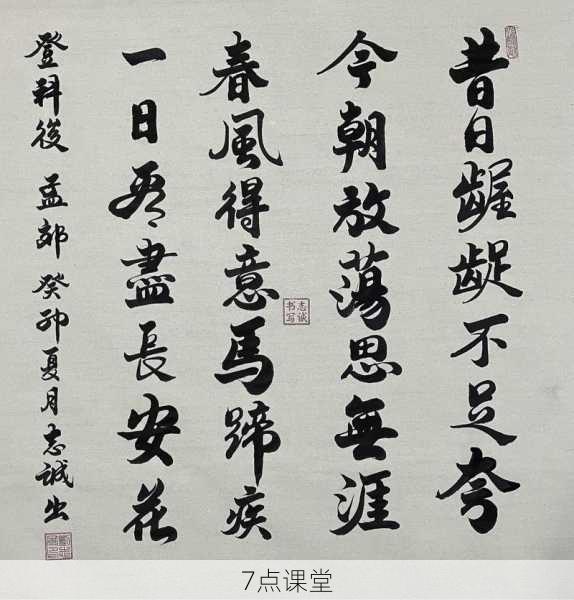 昔日齷齪不足夸
今朝放蕩思無涯
春風得意馬蹄疾
一日看盡長安花
登科後 孟郊 癸卯夏月志誠书
志诚
书写
7点课堂